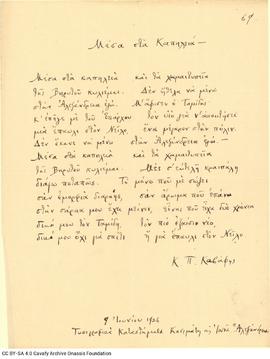 69
Μέσα στα Καπηλειά —
Μέσα στα καπηλειά και τα χαμαιτυπεία
της Βηρυτού κυλιέμαι. Δεν ήθελα να μένω
στην Αλεξάνδρεια εγώ. Μ' άφισεν ο Ταμίδης
κ' επήγε με του Επάρχου τον υιό για ν' αποκτήσει
μια έπαυλι στον Νείλο, ένα μέγαρον στην πόλιν.
Δεν έκανε να μένω στην Αλεξάνδρεια εγώ. —
Μέσα στα καπηλειά και τα χαμαιτυπεία
της Βηρυτού κυλιέμαι. Μες σ' ευτελή κραιπάλη
διάγω ποταπώς. Το μόνο που με σώζει
σαν εμορφιά διαρκής, σαν άρωμα που επάνω
στην σάρκα μου έχει μείνει, είναι που είχα δυο χρόνια
δικό μου τον Ταμίδη, τον πιο εξαίσιο νέο,
δικό μου όχι για σπίτι ή για έπαυλι στον Νείλο
Κ. Π. Καβάφης
Ιουνίου 1926
Τυπογραφικά Καταστήματα Κασιμάτη
CC BY-SA 4.0 Cavafy Archive Onassis Foundation